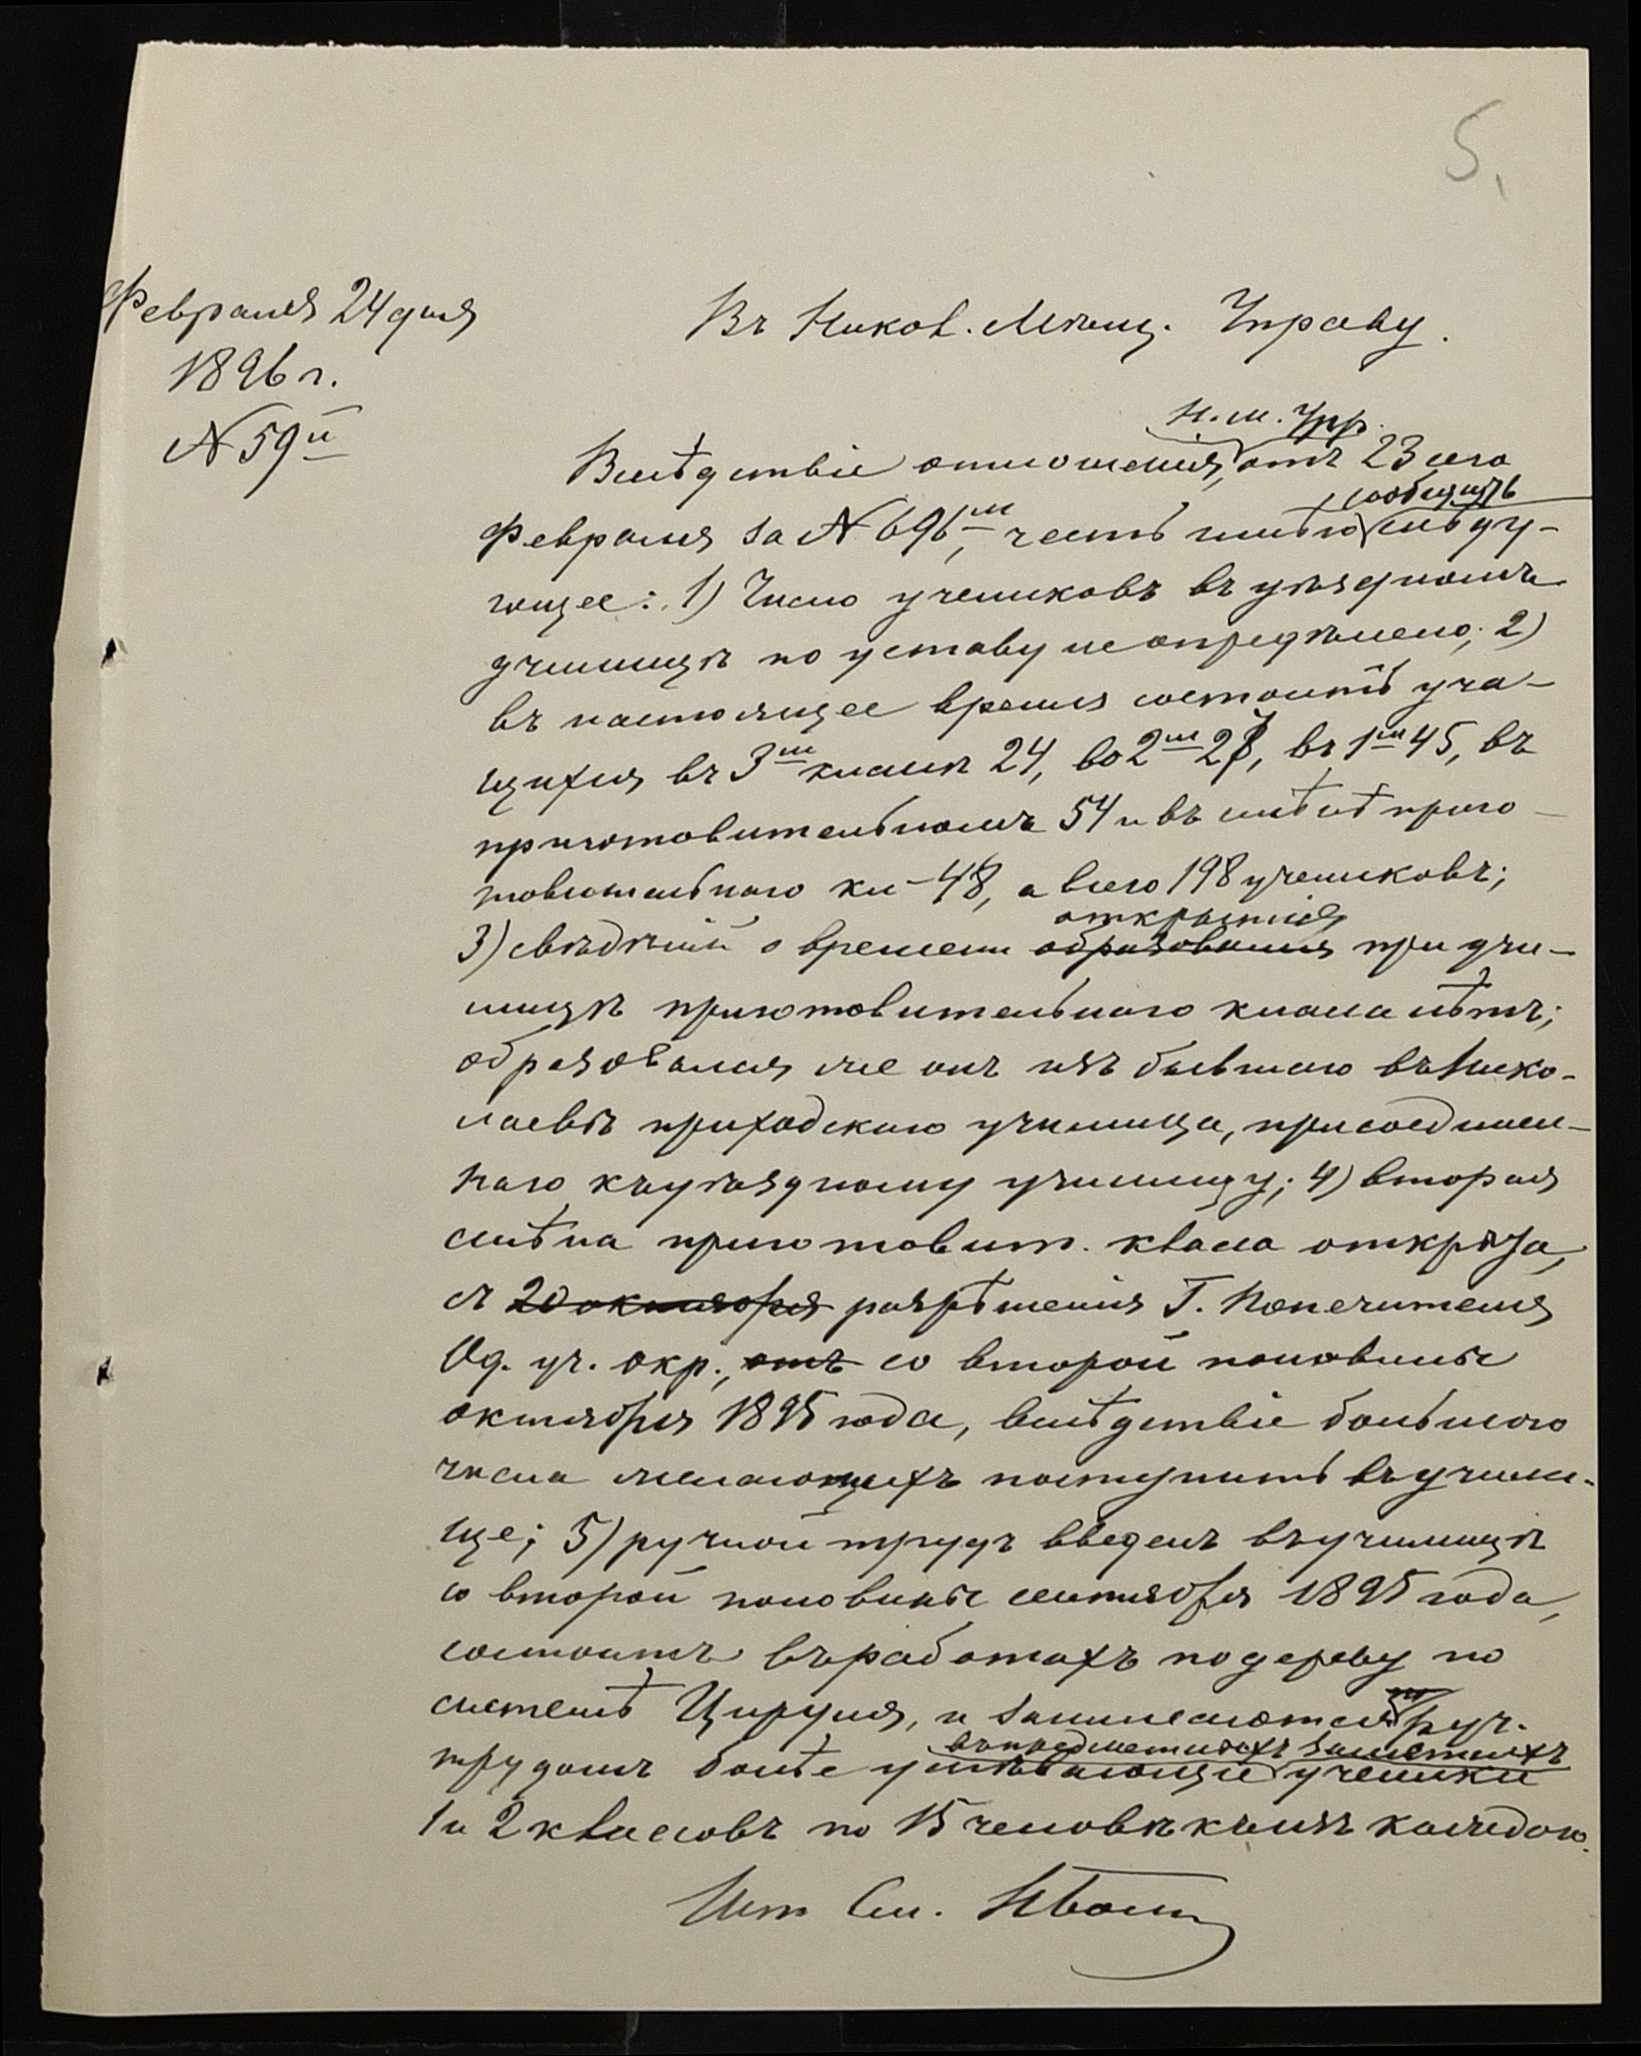 5.
Февраля 24 дня
1896 г.
№ 59й
Въ Никол. Мѣщ. Управу.
Н. м. Упр.
Вслѣдствіе отношенія, отъ 23 сего
сообщить
Февраля за № 696м, честь имѣю слѣду-
ющее: 1) Число учениковъ въ уѣздномъ
училищѣ по уставу неопредѣлено; 2)
въ настоящее время состоитъ уча-
щихся въ 3м классѣ 24, во 2м 27, въ 1м 45, въ
приготовительномъ 54 и въ смѣнѣ приго-
товительнаго кл - 48, а всего 198 учениковъ;
открытія
3) свѣдѣній о времени образованія при учи-
лищѣ приготовительнаго класса нѣтъ;
образовался же онъ изъ бывшаго въ Нико-
лаевѣ приходскаго училища, присоединен-
наго къ уѣздному училищу; 4) вторая
смѣна приготовит. класса открыта,
съ 20 октября разрѣшенія Г. Попечителя
Од. уч. окр., отъ со второй половины
октября 1895 года, вслѣдствіе большого
числа желающихъ поступить въ учили-
ще; 5) ручной трудъ введенъ въ училищѣ
со второй половины сентября 1895 года,
состоитъ въ работахъ по дереву по
системѣ Цируля, и занимаются руч.
въ предметныхъ занятіяхъ
трудомъ болѣе успѣвающіе ученики
1 и 2 классовъ по 15 человѣкъ изъ каждаго.
Шт См. Иванн